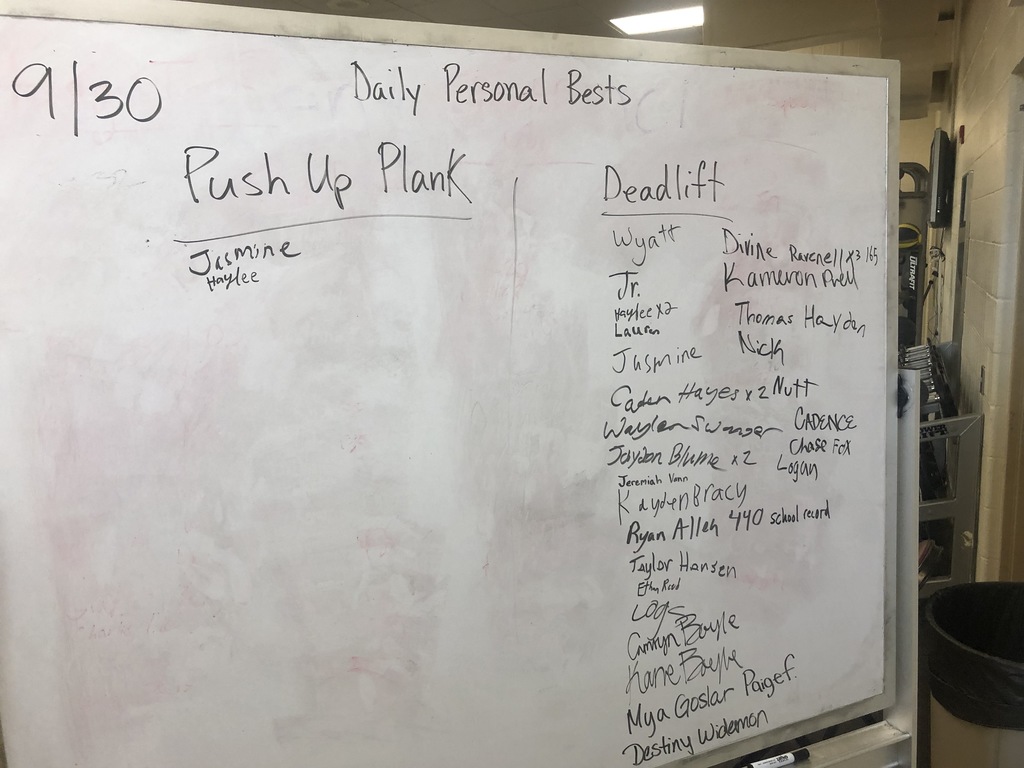 9/30
Daily Personal Bests
Push Up Plank
Jasmine
Haylee
Deadlift
Wyatt
Jr.
Haylee x2
Lauren
Jasmine
Caden Hayes x2
Waylen
Jayden Blume x2
Jeremiah Vann
Kayden Bracy
Ryan Allen 440 school record
Taylor Hansen
Ethan Reed
Logs
Camryn Boyle
Kane Boyle
Mya Goslar Paige F.
Destiny Widemon
Divine Ravenell x3 165
Kameron
Thomas Haydon
Nick
Nutt
CADENCE
Chase Fox
Logan